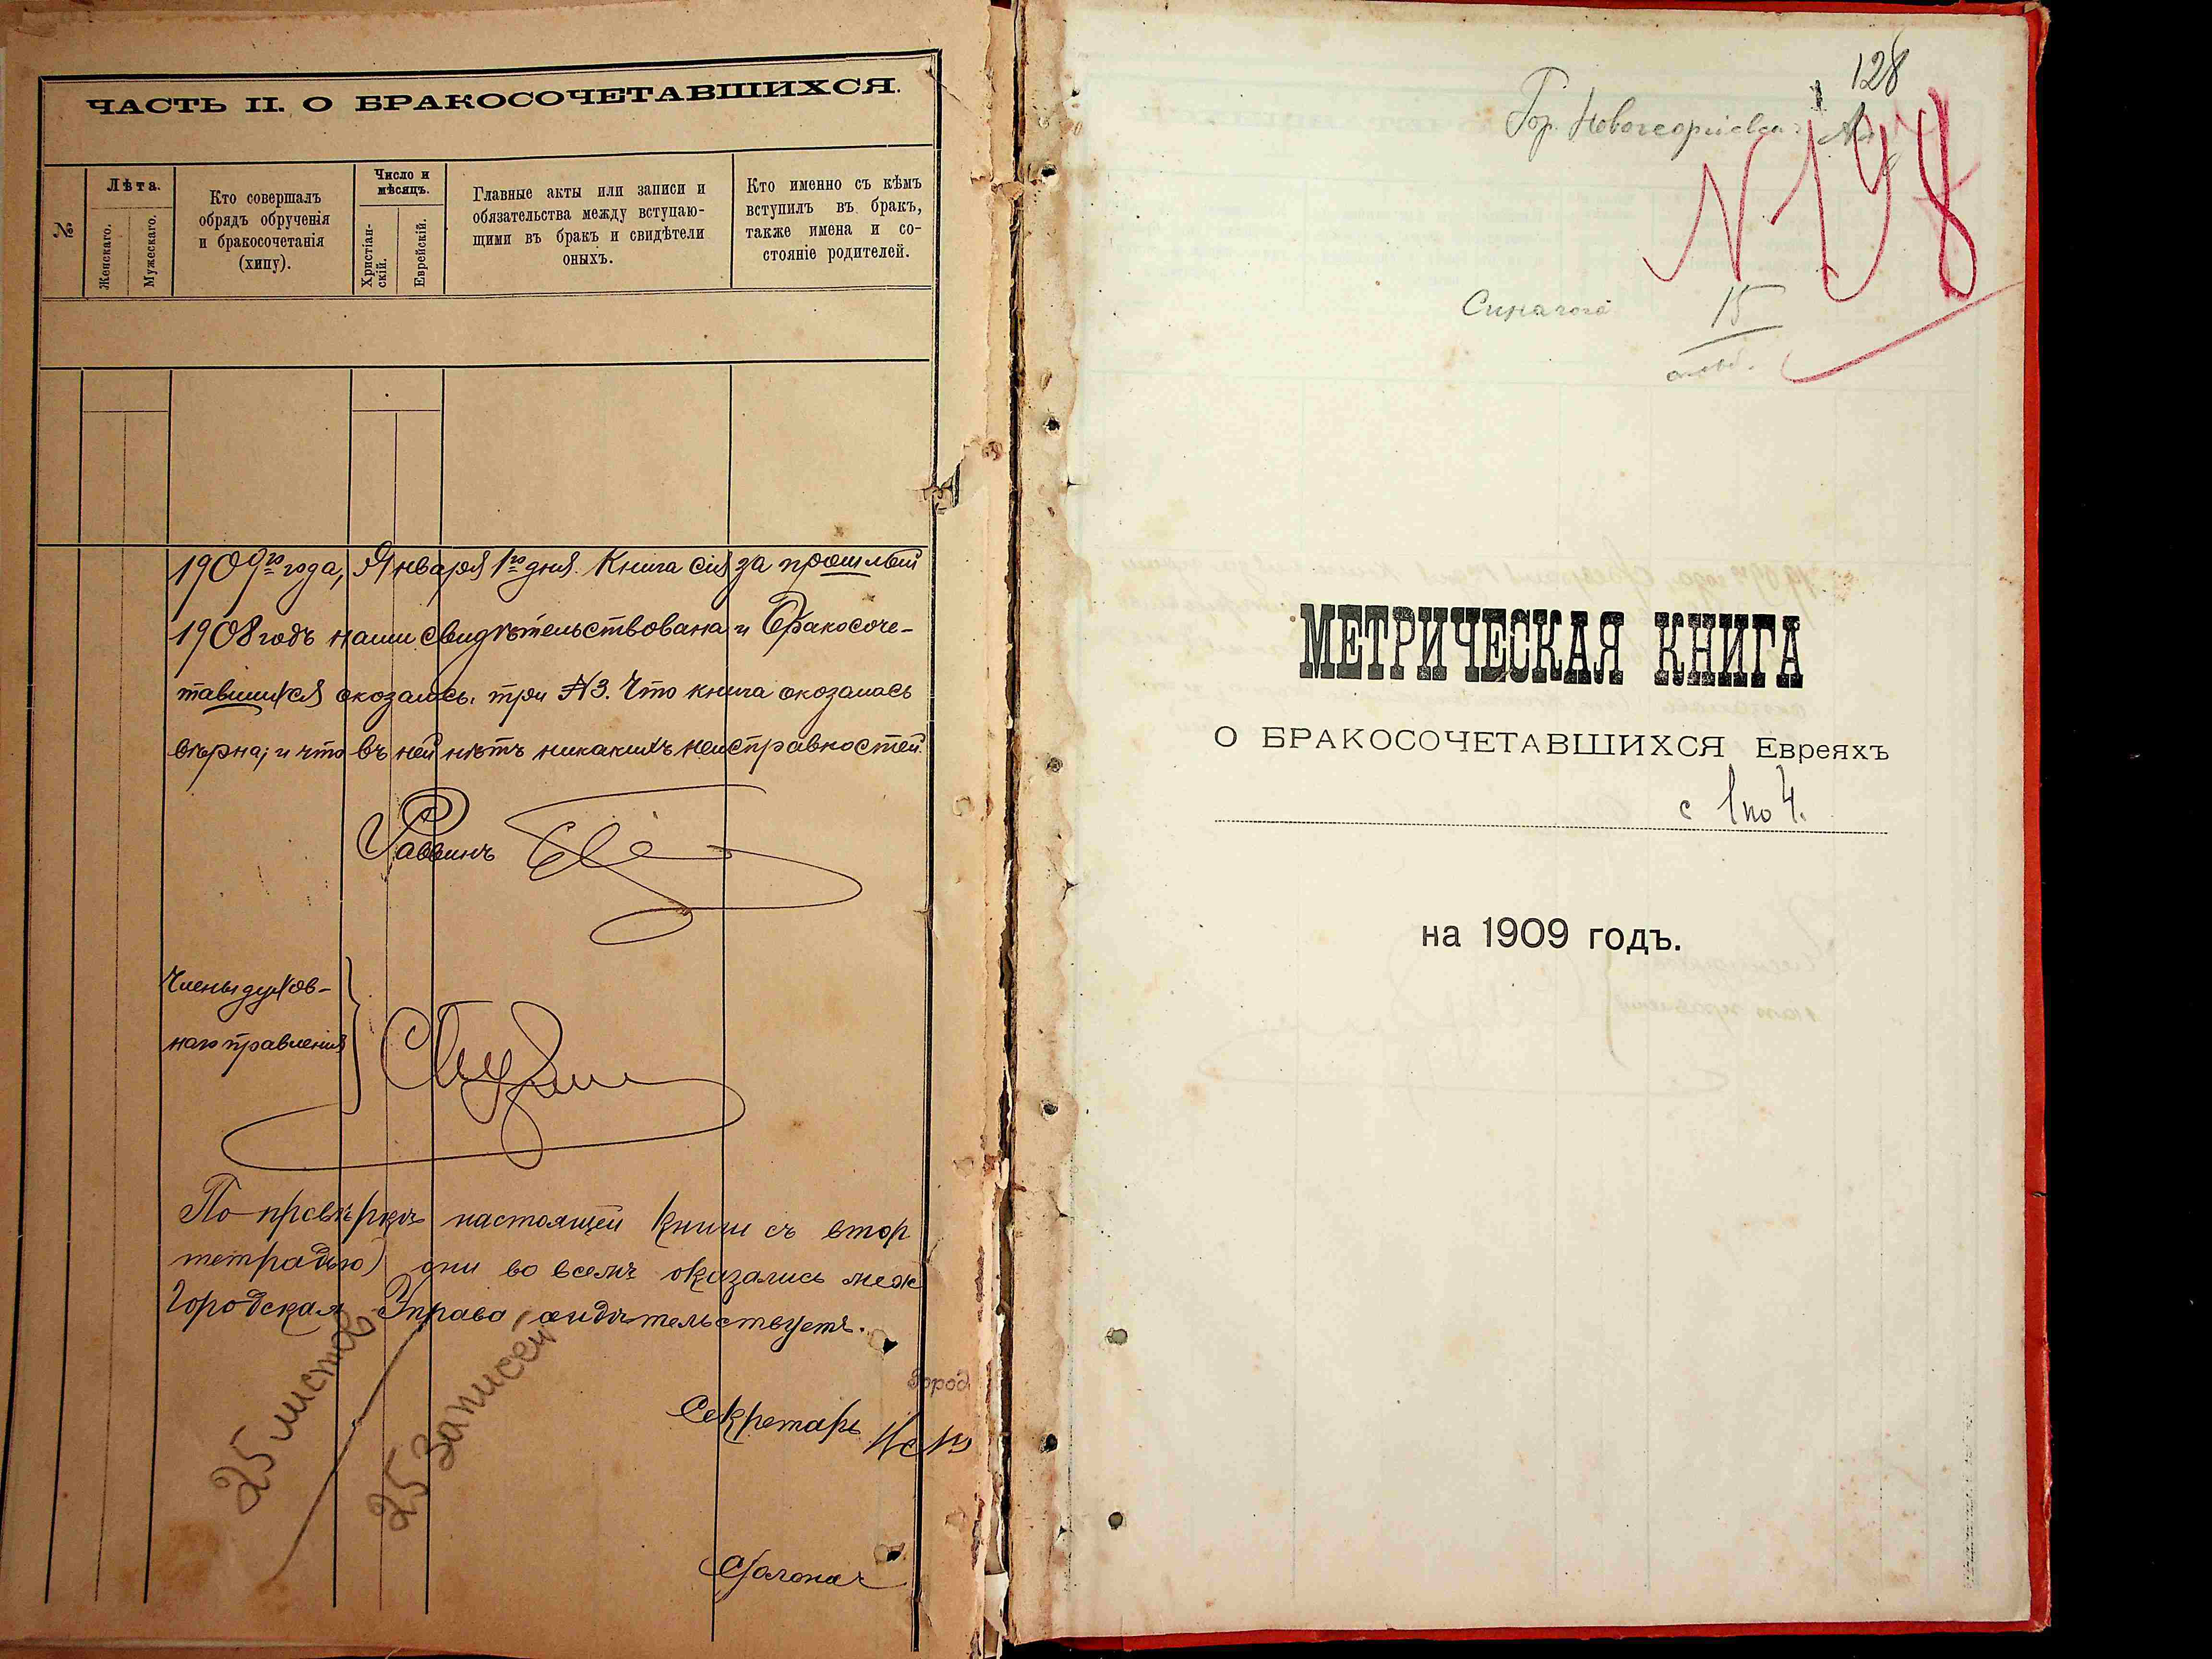 ЧАСТЬ II. О БРАКОСОЧЕТАВШИХСЯ.
№
Лѣта.
Женскаго.
Мужескаго.
Кто совершалъ
обрядъ обрученія
и бракосочетанія
(хипу).
Число и
мѣсяцъ.
Христіан-
скій.
Еврейскій.
Главные акты или записи и
обязательства между вступаю-
щими въ бракъ и свидѣтели
оныхъ.
Кто именно съ кѣмъ
вступилъ въ бракъ,
также имена и со-
стояніе родителей.
1909го года, Января 1го дня. Книга сія за прошлый
1908 годъ нами свидѣтельствована и Бракосоче-
тавшихся оказалось три №3. Что книга оказалась
вѣрна; и что въ ней нѣтъ никакихъ неисправностей.
Раввинъ
Члены духов-
наго правленія
По провѣркѣ настоящей книги съ втор
тетрадью они во всемъ оказались меж
Городская Управа свидѣтельствуетъ.
25 листов
25 записей
Город
Секретарь
128
Гор. Новогеоргіевска
N 198
Синагога
15
МЕТРИЧЕСКАЯ КНИГА
О БРАКОСОЧЕТАВШИХСЯ Евреяхъ
с 1 по 4.
на 1909 годъ.